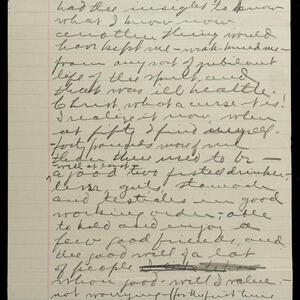 had the insight to know
what I know now
another thing would
have kept me – me
from any sort of jubilant
life of the spirit, and
that was ill health.
Christ, what a curse it is!
I realize it now, when
at fifty I find myself –
forty pounds more of me
than there used to be –
with at least
a good two fisted drinker –
liver, guts, stomach
and testicles in good
working order, able
to hold and enjoy a
few good friends, and
the good will of a lot
of people
whose good-will I value –
not worrying – for the first time